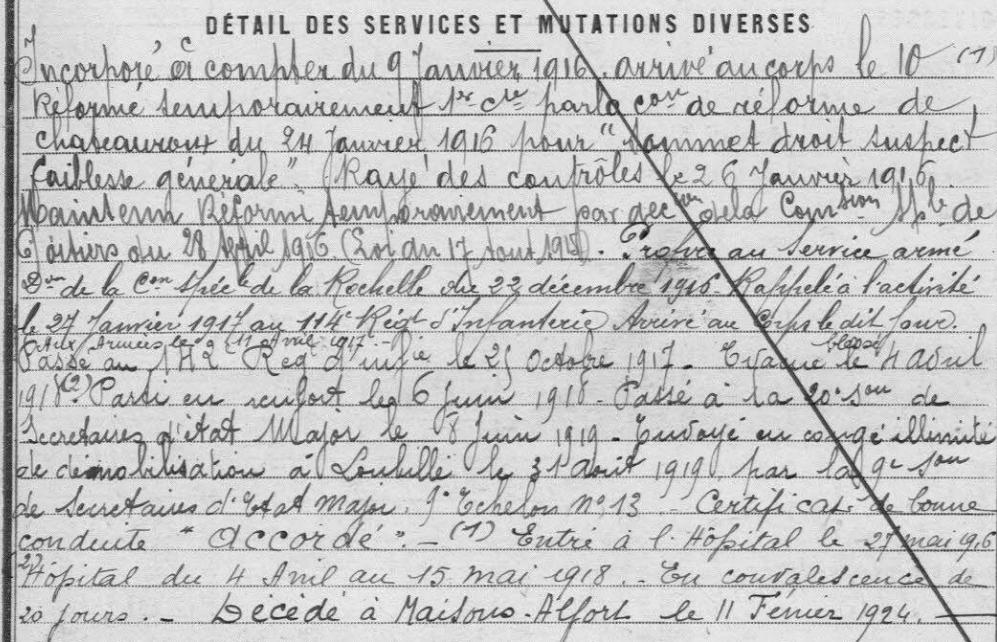 DÉTAIL DES SERVICES ET MUTATIONS DIVERSES
Incorporé à compter du 9 Janvier 1916. arrivé au corps le 10 (1)
Réformé temporairement 1re cie par la con de réforme de
Chateauroux du 24 Janvier 1916 pour "sommet droit suspect
faiblesse générale" Rayé des contrôles le 26 Janvier 1916.
Maintenu Réformé temporairement par decon de la Comsion Sple de
Poitiers du 28 Avril 1916 (Loi du 17 Aout 1915). Propre au Service armé
Don de la Con Spéele de la Rochelle du 22 décembre 1916. Rappelé à l'activité
le 27 Janvier 1917 au 114e Régt d'Infanterie Arrivé au Corps le dit jour.
Aux Armées le 11 Avril 1917.-
Passé au 142 Reg d'infie le 25 Octobre 1917. Evacué blessé le 4 Avril
1918 (2) Parti en renfort le 6 Juin 1918. Passé à la 20e son de
Secretaires d'état Major le 8 Juin 1919. Envoyé en congé illimité
de démobilisation à Loubillé le 31 Août 1919 par la 9e son
de Secretaires d'Etat Major. 9e Echelon No 13 - Certificat de bonne
conduite "Accordé". - (1) Entré à l'Hôpital le 27 mai 1916
(2) Hôpital du 4 Avril au 15 mai 1918. - En convalescence de
20 jours. - Décédé à Maisons-Alfort le 11 Février 1924.